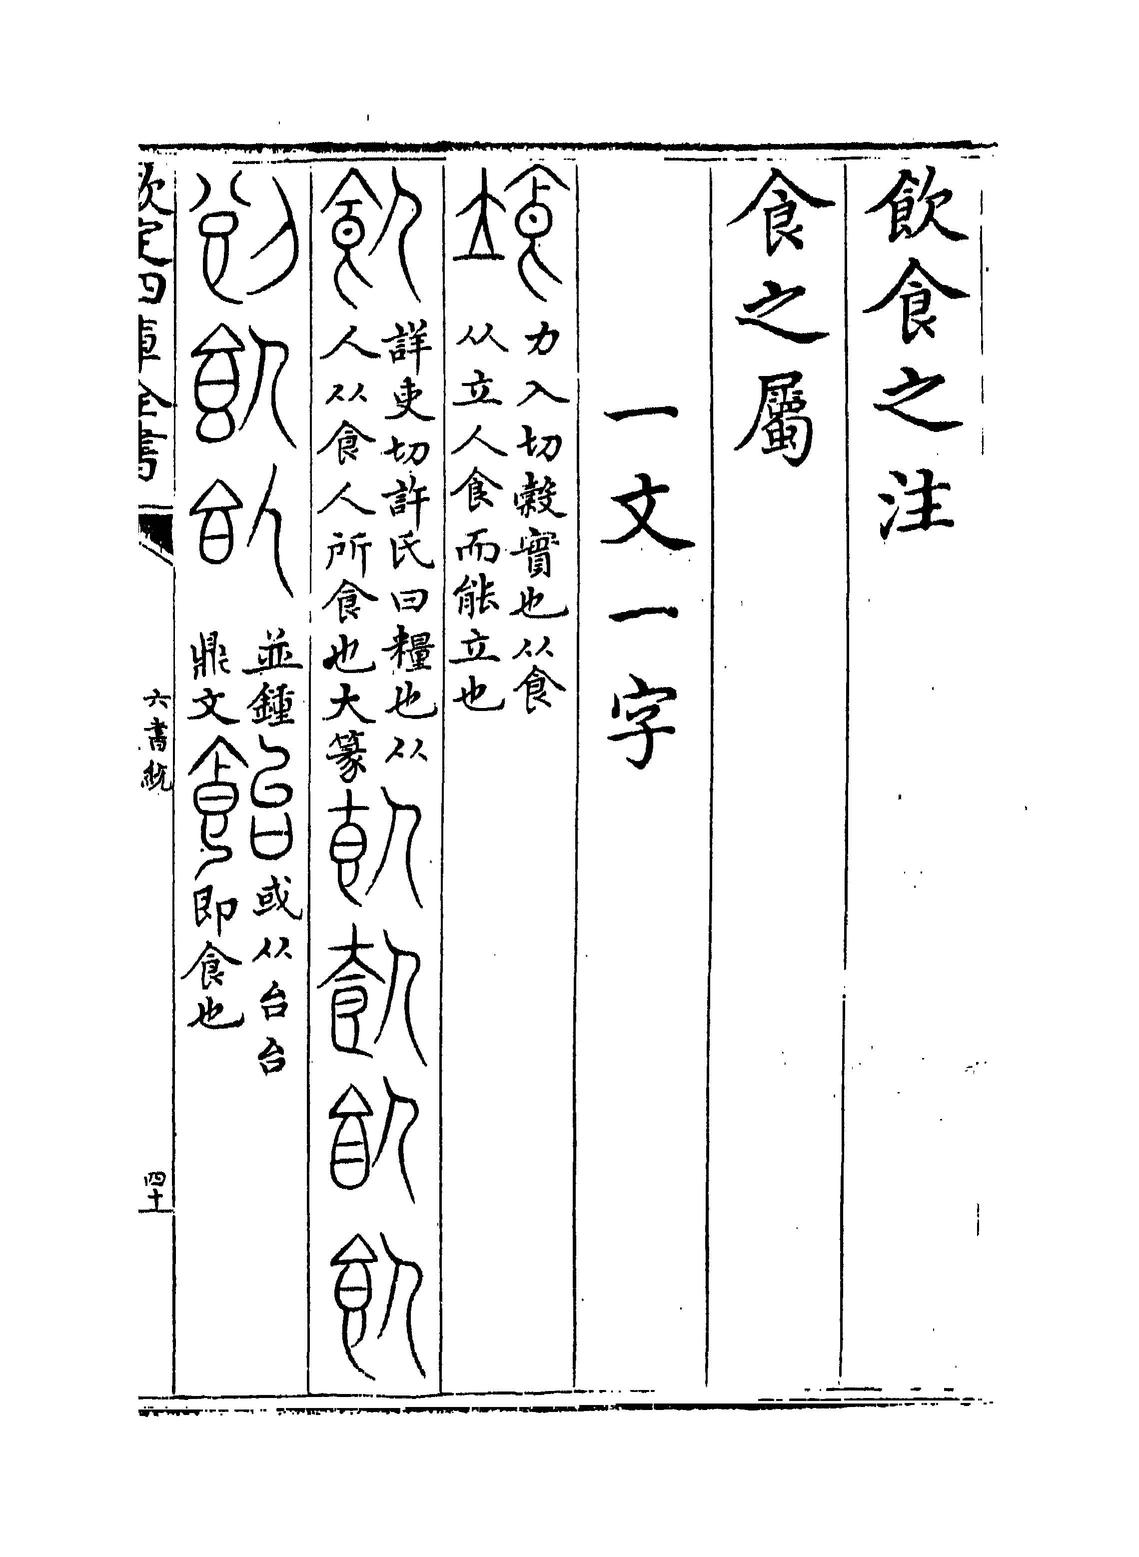 飲食之注
食之屬
一文一字
力入切糓實也从食
从立人食而能立也
詳吏切許氏曰糧也从
人从食人所食也大篆
並鍾
鼎文
或从台台
即食也
欽定四庫全書
六書統
四十